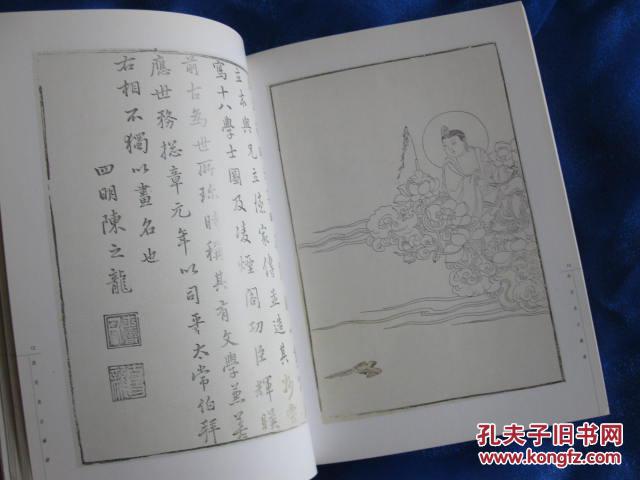 立本與兄立德家傳並造其妙嘗
寫十八學士圖及凌煙閣功臣輝暎
前古為世所珍時稱其有文學兼善
應世務總章元年以司平太常伯拜
右相不獨以畫名也
四明陳之龍
孔夫子旧书网
www.kongfz.com